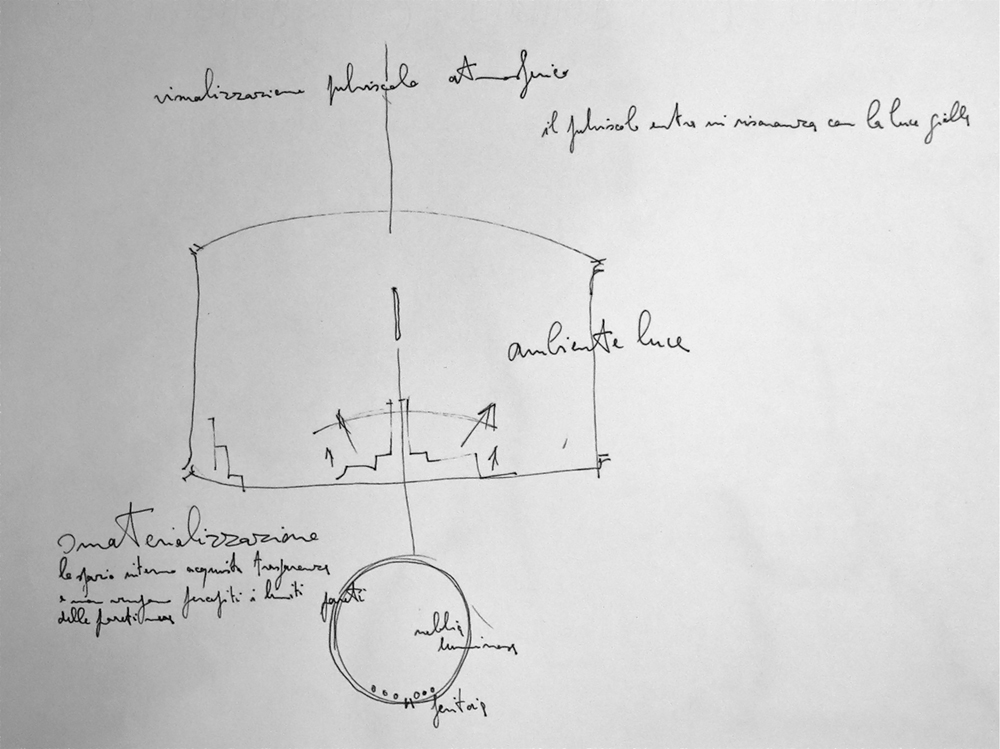 visualizzazione pulviscolo atmosferico
il pulviscolo entra in risonanza con la luce gialla
ambiente luce
smaterializzazione
lo spazio interno acquista trasparenza
e non vengono percepiti i limiti
delle pareti
pareti
nebbia
luminosa
feritoia